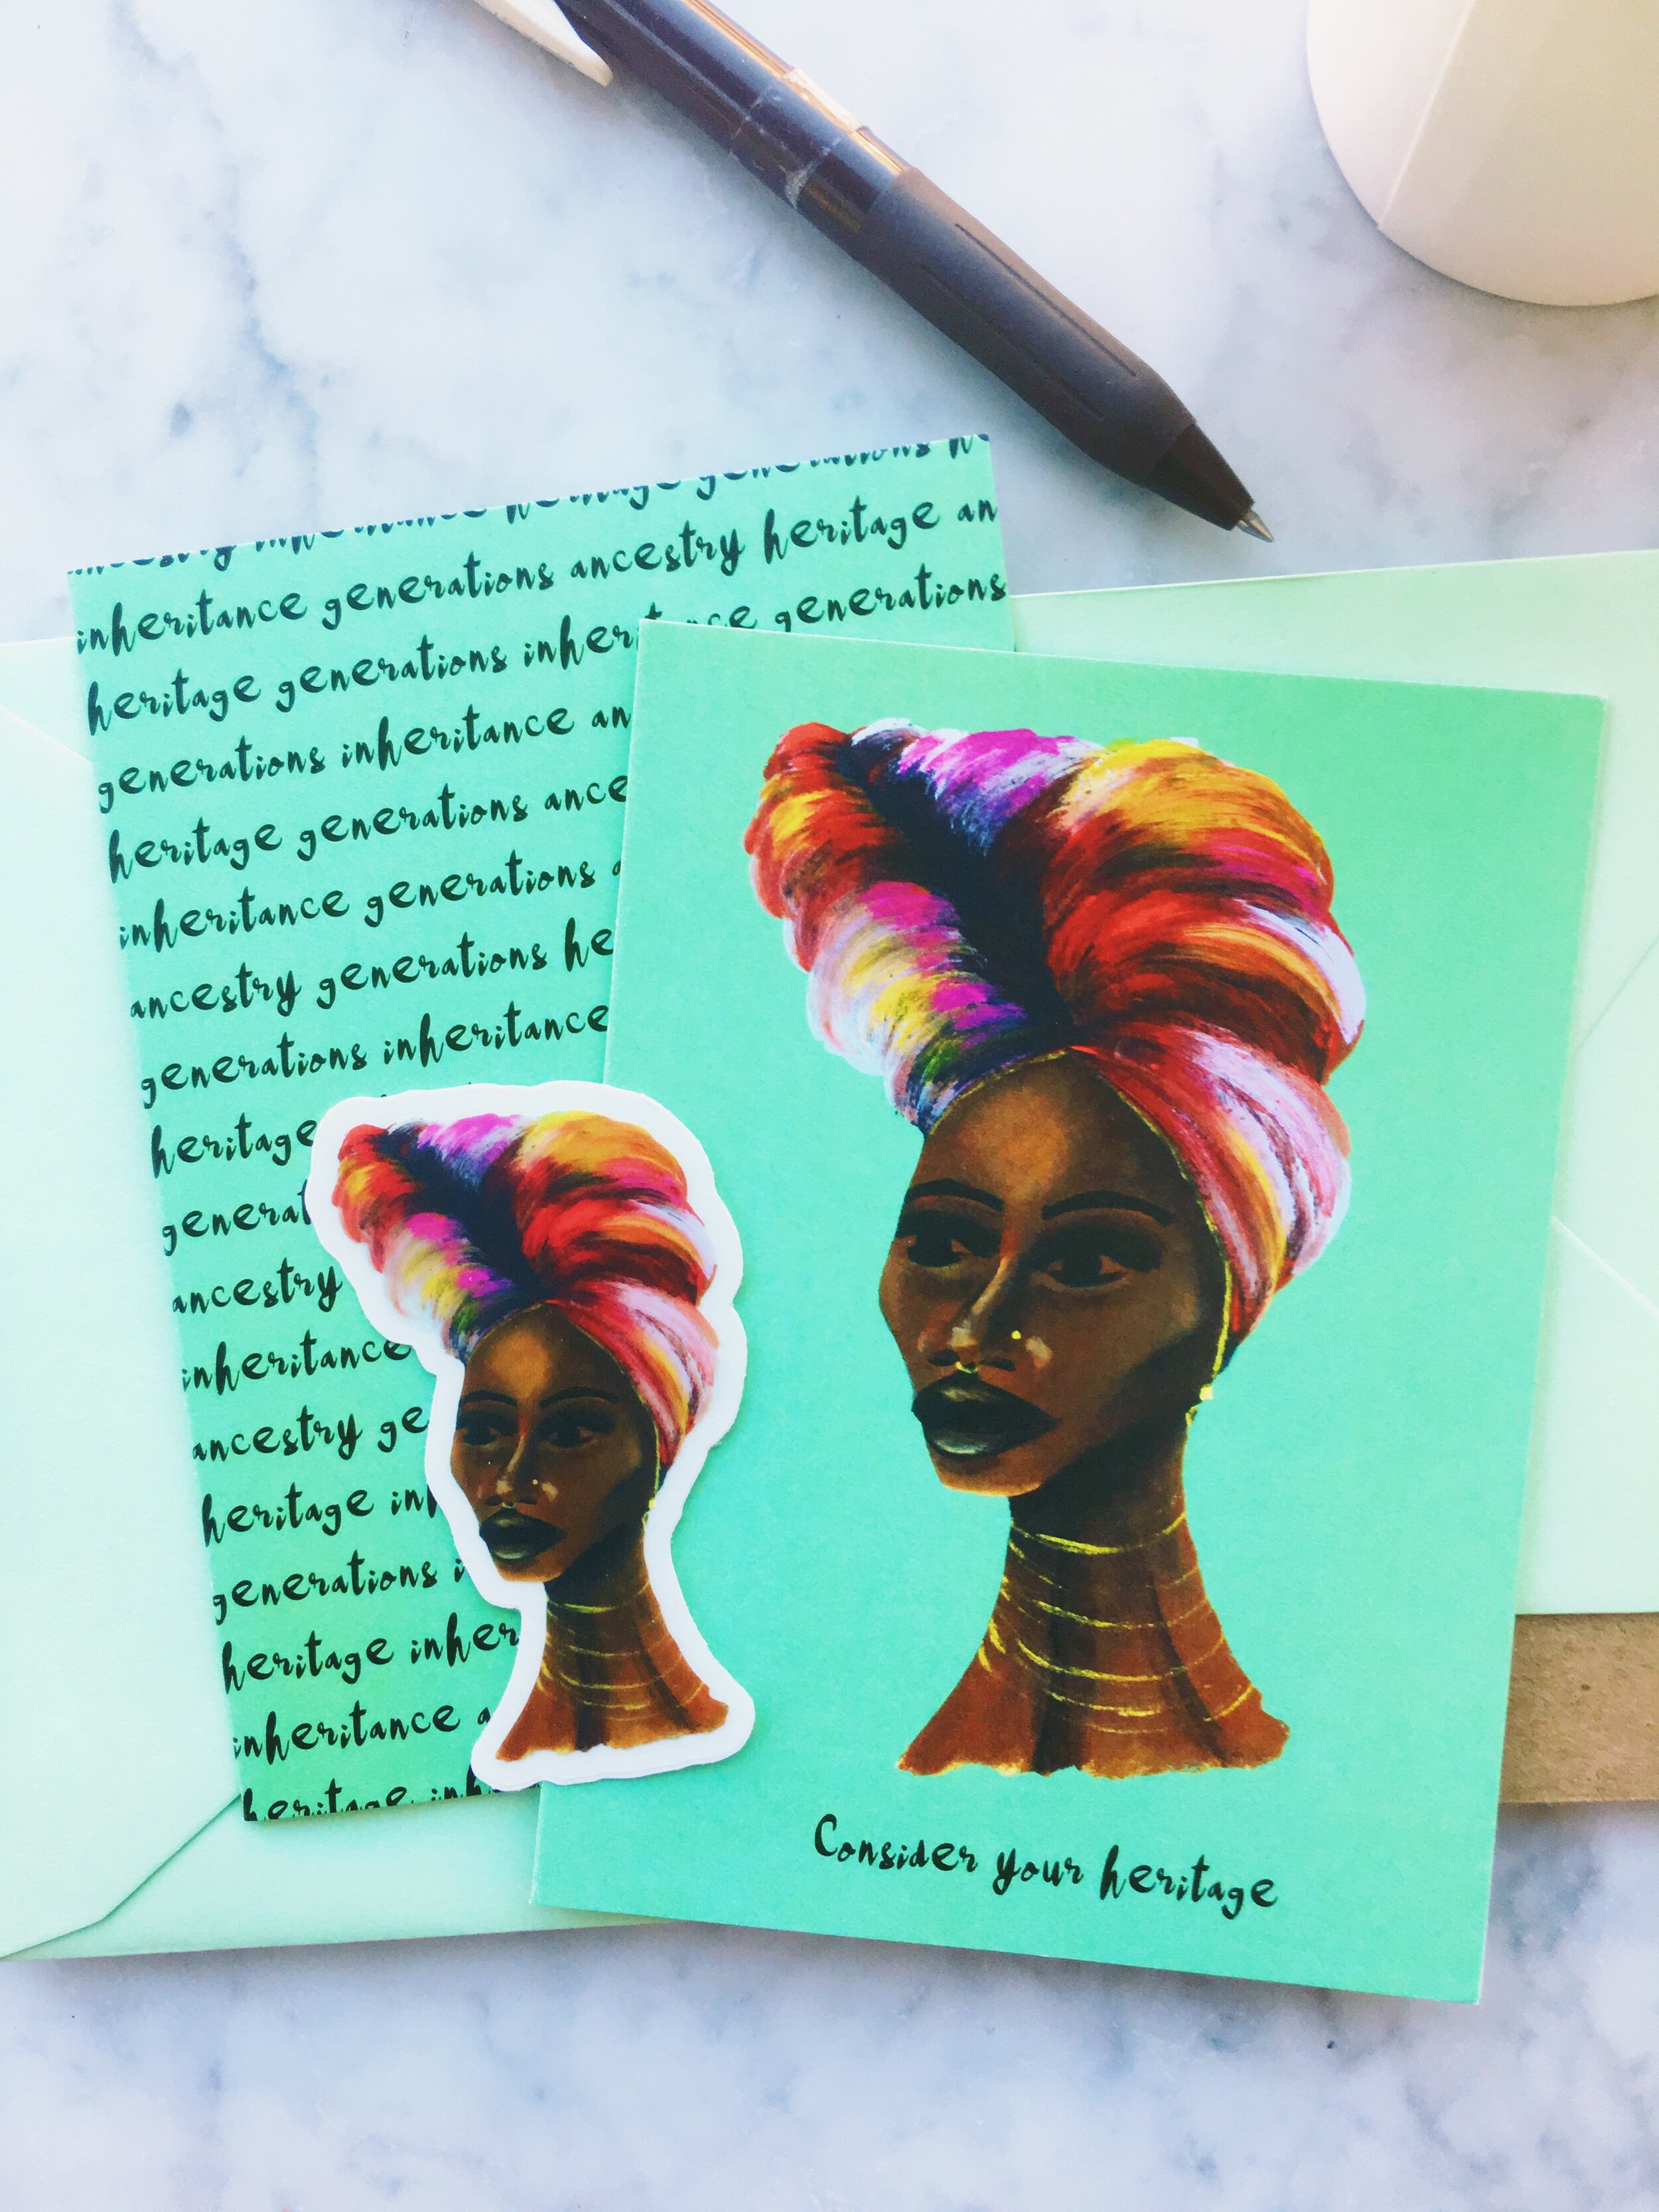 inheritance generations ancestry heritage an
heritage generations inheritance generations
generations inheritance an
heritage generations ance
inheritance generations a
ancestry generations he
generations inheritance
heritage
generat
ancestry
inheritance
ancestry ge
heritage inh
generations i
heritage inher
inheritance a
heritage inh
Consider your heritage